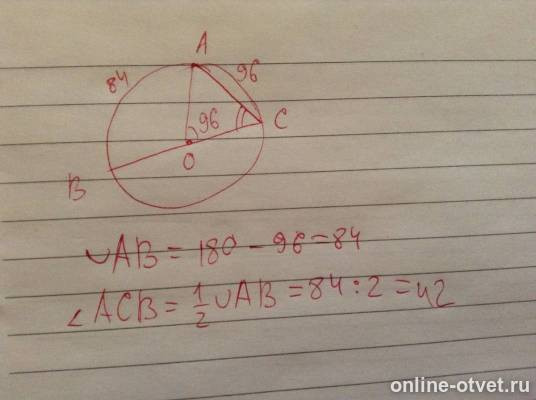 A
84
96
96
C
O
B
◡AB = 180 - 96 = 84
∠ACB = 1/2 ◡AB = 84 : 2 = 42
online-otvet.ru